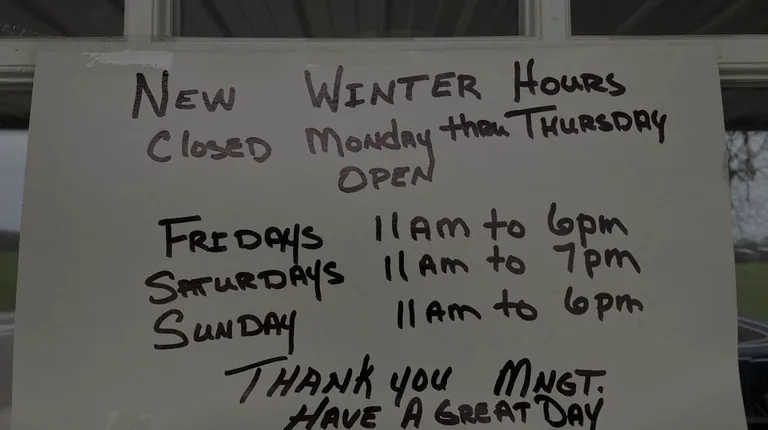 NEW WINTER HOURS
CLOSED MONDAY thru THURSDAY
OPEN
FRIDAYS 11AM to 6pm
SATURDAYS 11AM to 7pm
SUNDAY 11AM to 6pm
THANK YOU MNGT.
HAVE A GREAT DAY